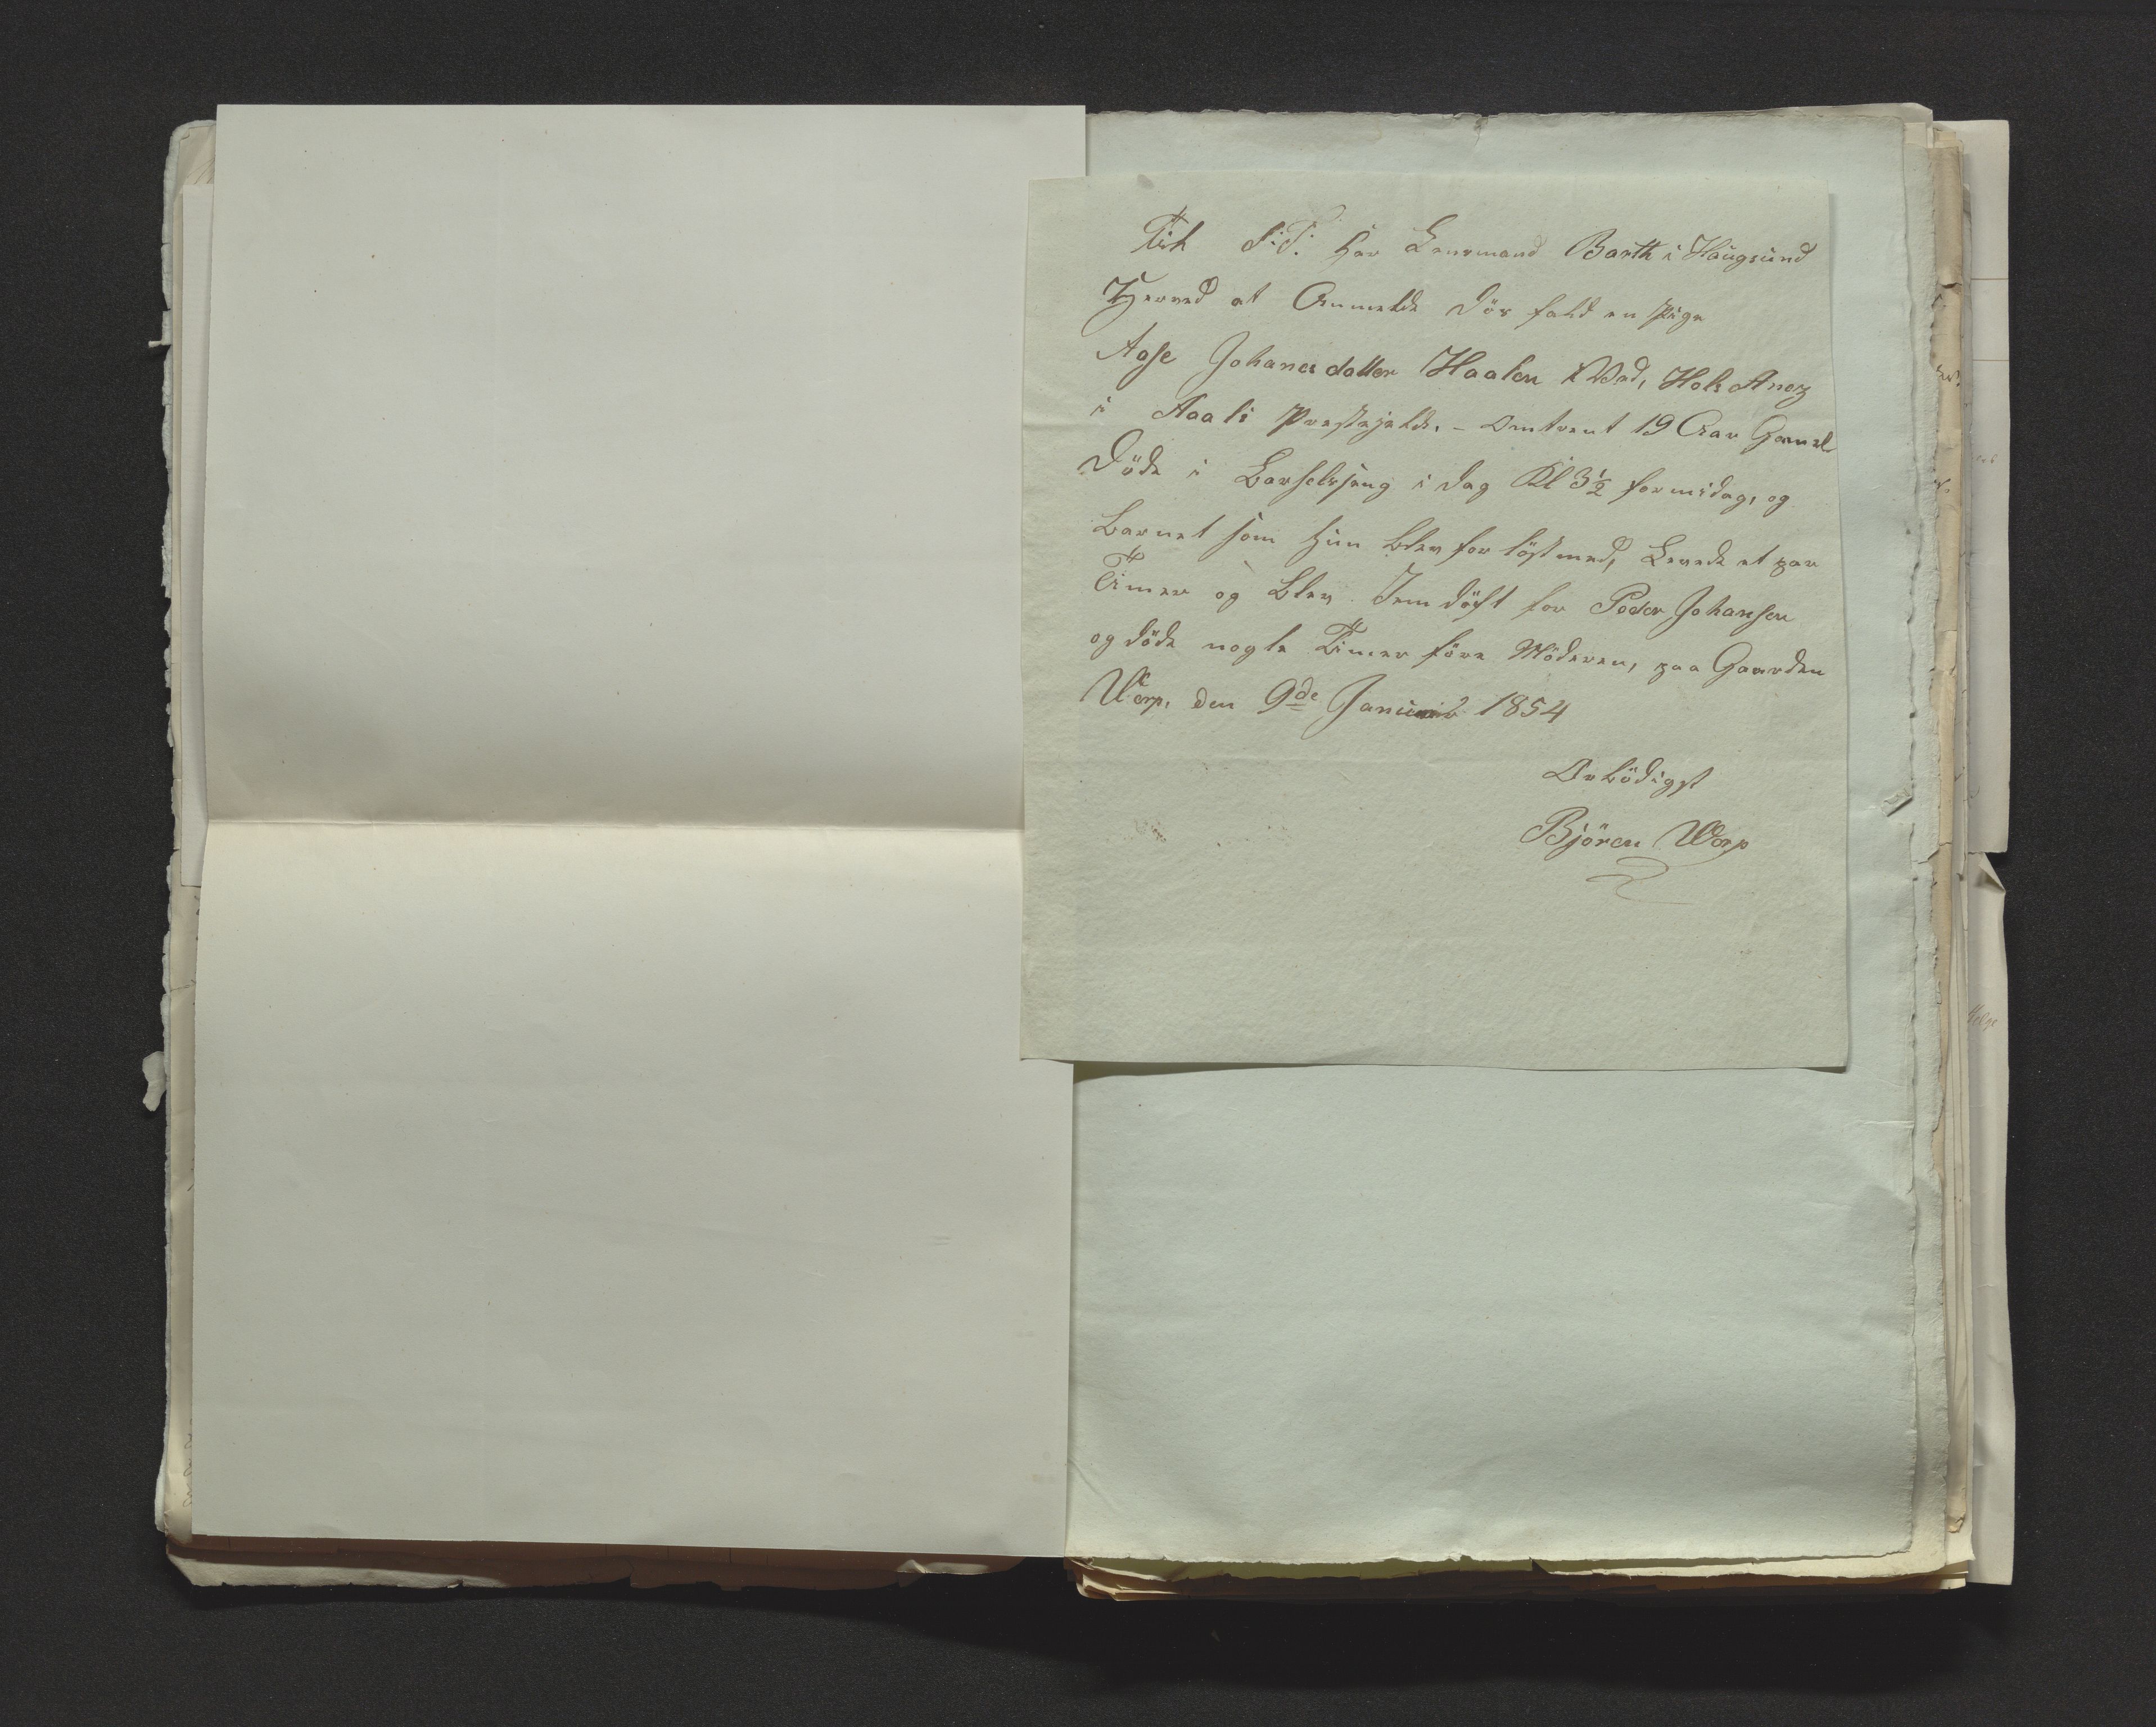 Til S: T: Her Lensmand Barth i Haugsund
Herved at Anmelde Dös fald en Pige
Aase Johanesdatter Haalen Hols Anex
i Aals Prestejeld. – Omtrent 19 Aar Gamel
Döde i Barselsseng i dag Kl 3½ formidag, og
Barnet som hun blev for löst med, Levede et par
Timer og blev Jem döbt for Peder Johansen
og döde nogle Timer före Moderen, paa Gaarden
Værp. den 9de Januar 1854
Erbödigst
Björen Værp